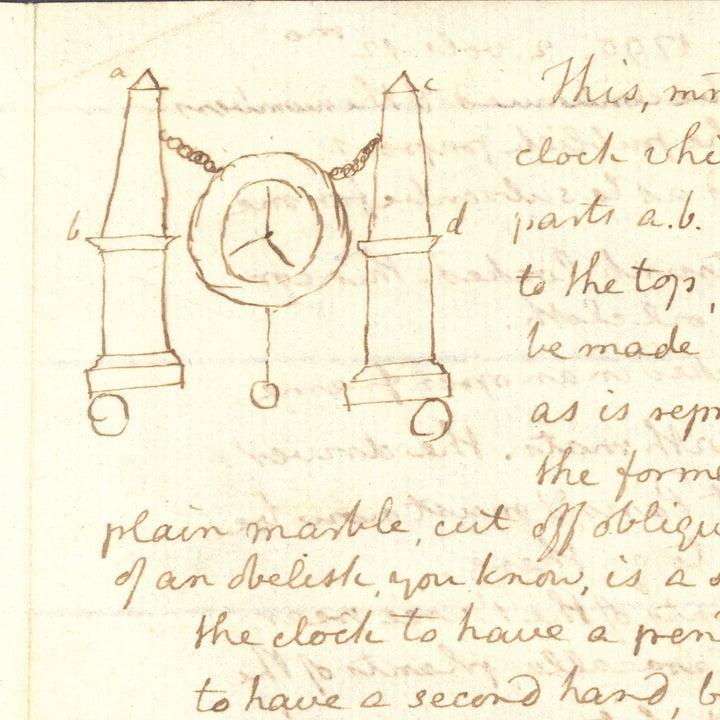 a c
This, mr
clock whi
b d parts a.b.
to the top,
be made
as is repr
the forme
plain marble, cut off obliqu
of an obelisk, you know, is a
the clock to have a pen
to have a second hand, b